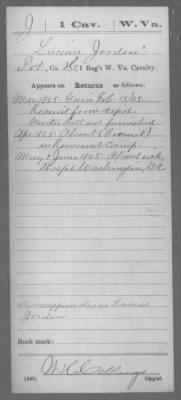 J 1 Cav. W. Va.
Lucian Jordon
Pvt, Co. H, 1 Reg't W. Va. Cavalry.
Appears on Returns as follows:
Mar. 1865. Gain Feb. 13/65.
Recruit from depot.
Muster Roll not furnished.
Apr. 1865. Absent (Recruit)
in Remount Camp.
May & June 1865. Absent sick,
Hosp'l Washington, D.C.
Name appears also as Lucius
Jordon
Book mark:
(546)
Copyist.